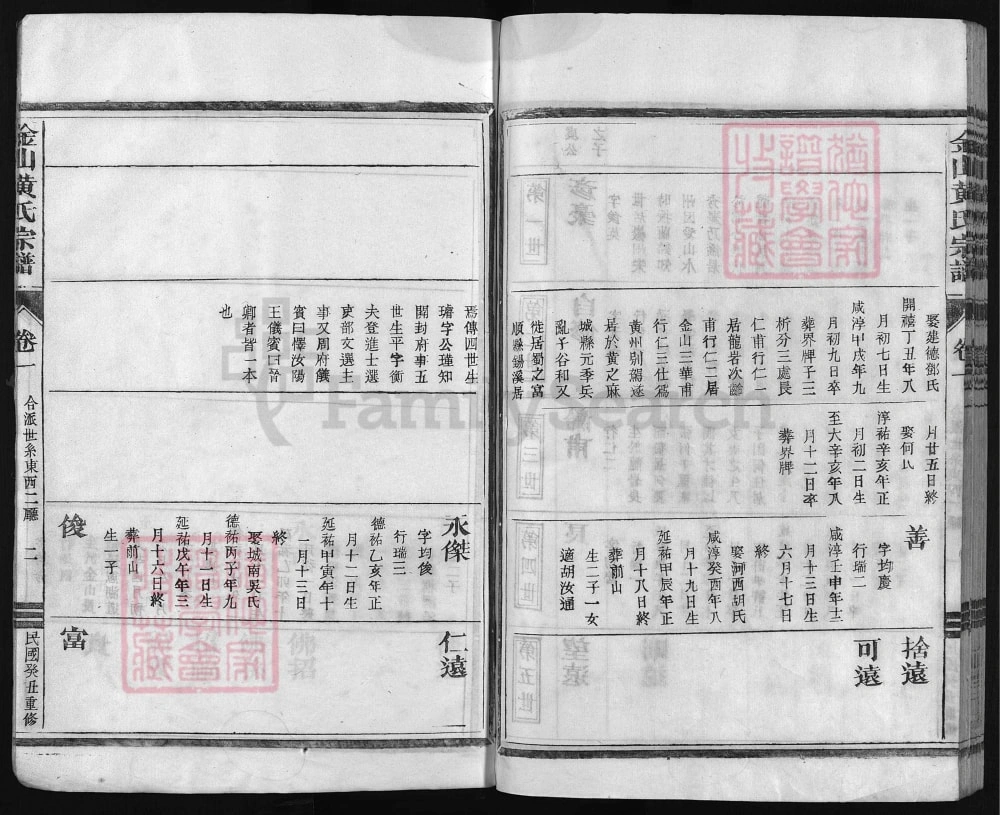 金山黃氏宗譜
卷一
娶建德鄧氏
開禧丁丑年八
月初七日生
咸淳甲戌年九
月初九日卒
葬界牌子三
析分三處長
仁甫行仁一
居龍岩次
甫行仁二居
金山三華甫
行仁三仕爲
黃州別駕遂
居於黃之麻
城縣元季兵
亂子谷和又
徙居蜀之富
順縣錫溪居
月廿五日終
娶何氏
淳祐辛亥年正
月初二日生
至大辛亥年八
月十二日卒
葬界牌
善
字均慶
行瑞二
咸淳壬申年十二
月十三日生
六月十七日
終
娶河西胡氏
咸淳癸酉年八
月十九日生
延祐甲辰年正
月十八日終
葬前山
生二子一女
適胡汝通
捨遠
可遠
焉傳四世生
璿字公瑾知
開封府事五
世生平字衡
夫登進士選
吏部文選主
事又周府儀
賓曰懌汝陽
王儀賓曰晉
卿者皆一本
也
永傑
字均俊
行瑞三
德祐乙亥年正
月十二日生
延祐甲寅年十
一月十三日
終
娶城南吳氏
德祐丙子年九
月十一日生
延祐戊午年三
月十六日終
葬前山
生一子
俊
仁遠
富
金山黃氏宗譜
卷一
合派世系東西二廳
二
民國癸丑重修
FamilySearch